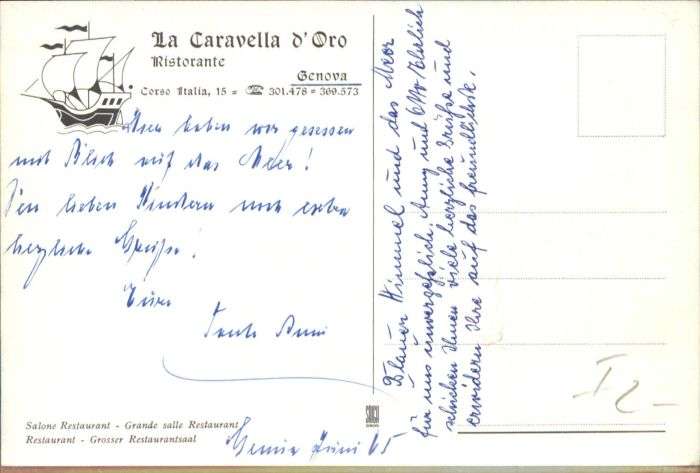 La Caravella d'Oro
Ristorante
Genova
Corso Italia, 15 = ☎ 301.478 = 369.573
Hier haben wir gesessen
mit Blick auf das Meer!
Den lieben Kindern noch extra
herzliche Grüsse!
Eure
Tante Anni
Salone Restaurant - Grande salle Restaurant
Restaurant - Grosser Restaurantsaal
Genua Juni 65
Blauer Himmel und das Meer
für uns unvergeßlich. Anny und Otto Ehrlich
schicken Ihnen viele herzliche Grüße und
erwidern Ihre auf das freundlichste.
I 2-